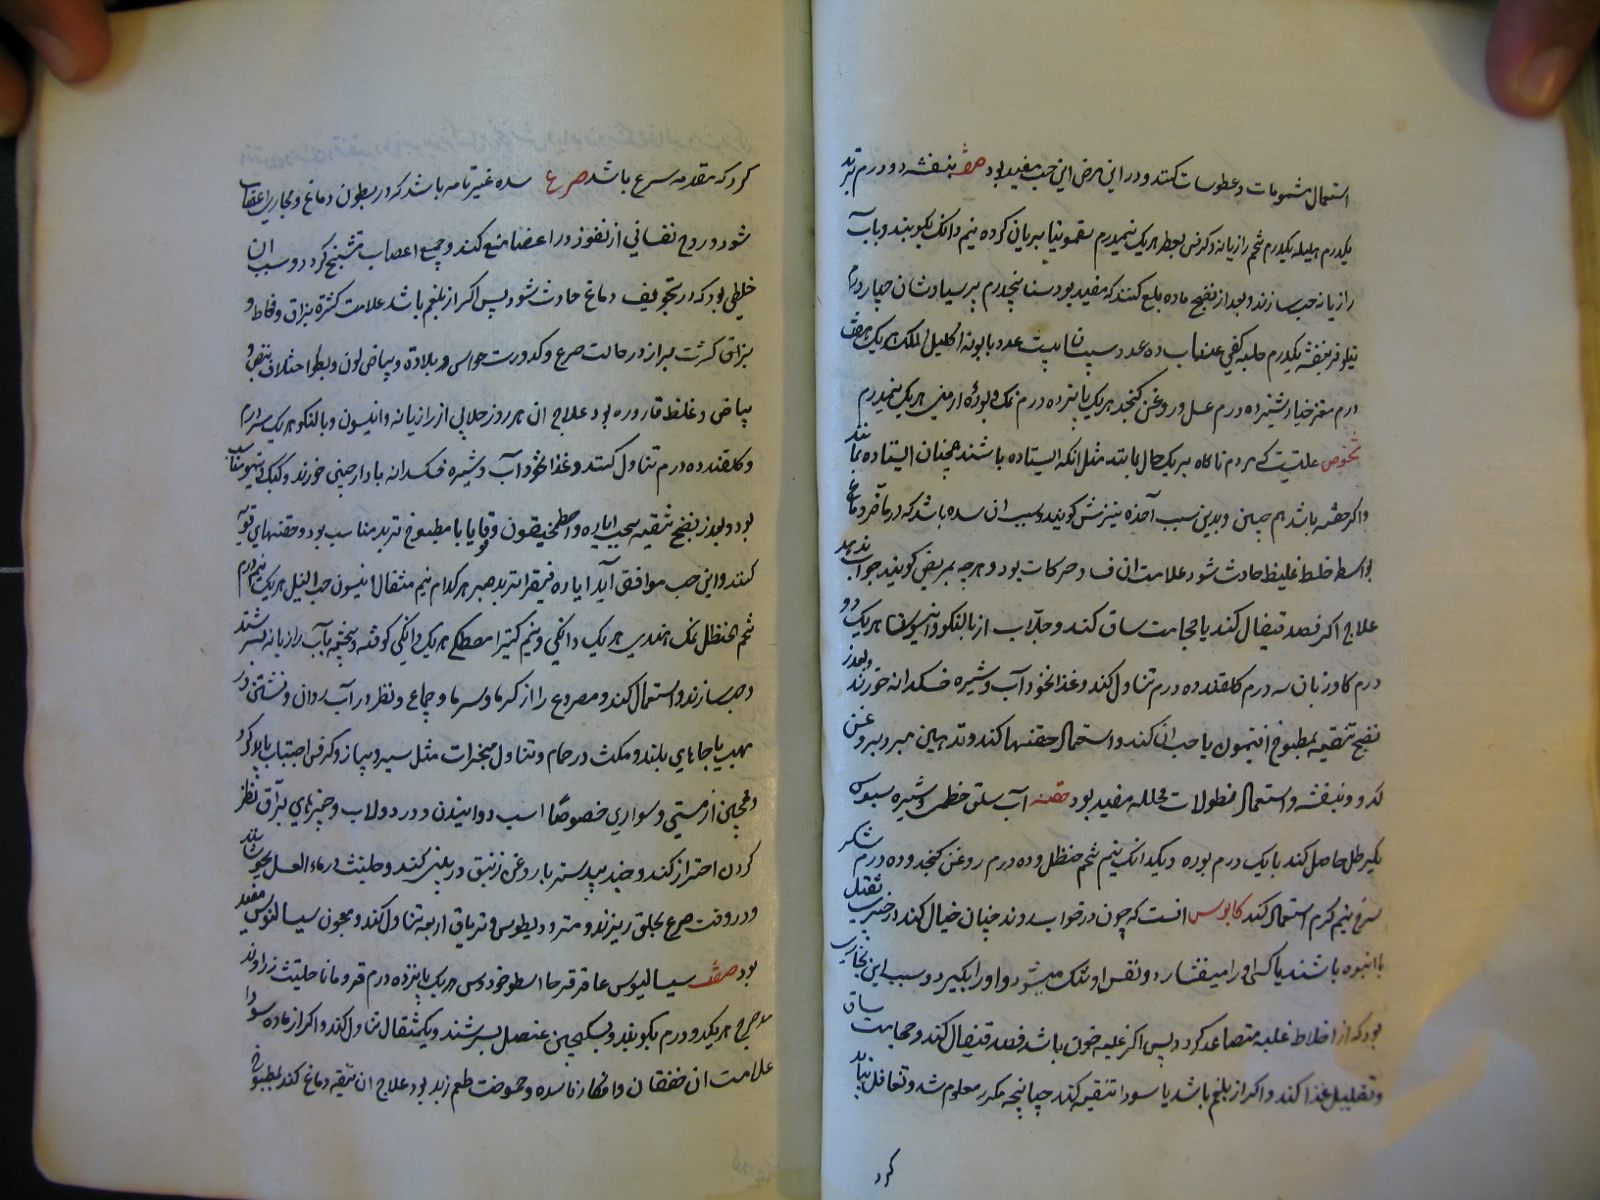 استعمال شمومات و عطوسات کنند و در این مرض این حب مفید بود صفة بنفشه دو درم تربد
یکدرم هلیله یکدرم تخم رازیانه و کرفس هریک نیمدرم سقمونیا بریان کرده نیم دانک بکوبند و بآب
رازیانه حب سازند و بعد از نضج ماده بلع کنند که مفید بود سنا پنجدرم پرسیاوشان چهار درم
نیلوفر بنفشه یکدرم حلبه کفی عناب ده عدد سپستان بیست عدد بابونه اکلیل الملک هریک
درم مغز خیارشنبر ده درم عسل و روغن کنجد هریک پانزده درم نمک و بورهٔ ارمنی هریک نیمدرم
شخوص علتیست که مردم ناکاه بر یک حال بمانند مثل انکه ایستاده باشند همچنان ایستاده بمانند
و اکر خفته باشد هم چنین و بدین سبب آخذه نیزش کویند و سبب ان سده باشد که در مؤخر دماغ
بواسطه خلط غلیظ حادث شود علامت ان فساد حرکات بود و هرچه بمریض کویند جواب ندهد
علاج اکر فصد قیفال کنند یا حجامت ساق کنند و جلاب از بالنکو و هریک دو
درم کاوزبان سه درم کلقند ده درم تناول کند و غذا نخود آب و شیره خسکدانه خورند و بعد از
نضج تنقیه بمطبوخ افتیمون یا حب ان کند و استعمال حقنها کند و تدهین سر بروغن
کدو و بنفشه و استعمال نطولات محلله مفید بود حقنه آب سلق خطمی و شیره سبوس
یکیرطل حاصل کند با یک درم بوره و یکدانک نیم شحم حنظل و ده درم روغن کنجد و ده درم شکر
سرخ نیم کرم استعمال کند کابوس انست که چون در خواب روند چنان خیال کند که چیزی ثقیل
یا انبوه باشند یا کسی او را میفشارد و نفس او تنک میشود و او را بکیرد و سبب این بخاری
بود که از اخلاط غلبه متصاعد کردد پس اکر غلبه خون باشد فصد قیفال کند و حجامت ساق
و تقلیل غذا کند و اکر از بلغم باشد یا سودا تنقیه کند چنانچه مکرر معلوم شد و تغافل نباید
کرد
کرد که مقدمه صرع باشد صرع سده غیر تامه باشد که در بطون دماغ و مجاری اعصاب
شود و روح نفسانی از نفوذ در اعضا منع کند و جمیع اعصاب متشنج کردد و سبب ان
خلطی بود که در تجویف دماغ حادث شود پس اکر از بلغم باشد علامت کثرة بزاق و مخاط و
بزاق کثرت براز در حالت صرع و کدورت حواس و بلادة و بیاض لون و بطو اختلاف نبض و
بیاض و غلظ قاروره بود علاج ان هر روز جلابی از رازیانه و انیسون و بالنکو هریک سه درم
و کلقند ده درم تناول کنند و غذا نخود آب و شیره خسکدانه با دارچینی خورند و کبک و تیهو مناسب
بود و بعد از نضج تنقیه بحب ایاره و اصطمخیقون و قوقایا یا مطبوخ تربد مناسب بود و حقنهای قویه
کنند و این حب موافق آید ایاره فیقرا تربد صبر هرکدام نیم مثقال انیسون حب النیل هریک نیمدرم
شحم الحنظل نمک هندی هریک دانکی و نیم کتیرا مصطکی هریک دانکی کوفته و بیخته بآب رازیانه بسرشند
و حب سازند و استعمال کند و مصروع را از کرما و سرما و جماع و نظر در آب روان و نشستن در
مهب یا جاهای بلند و مکث در حمام و تناول مبخرات مثل سیر و پیاز و کرفس اجتناب باید کرد
و همچنین از مستی و سواری خصوصاً اسب دوانیدن و در دولاب و چیزهای براق نظر
کردن احتراز کند و جندبیدستر با روغن زنبق در بینی کند و حلتیت در ماءالعسل بجوشانند
و در وقت صرع بحلق ریزند و مثرودیطوس و تریاق اربعه تناول کند و معجون سیسالیوس مفید
بود صفة سیسالیوس عاقرقرحا اسطوخودوس هریک پانزده درم قردمانا حلتیت زراوند
مدحرج هریک دو درم بکوبند و بسکنجبین عنصل بسرشند و یکمثقال تناول کند و اکر از ماده سودا
علامت ان خفقان و افکار فاسده و حموضت طعم زبد بود علاج ان تنقیه دماغ کند بمطبوخ